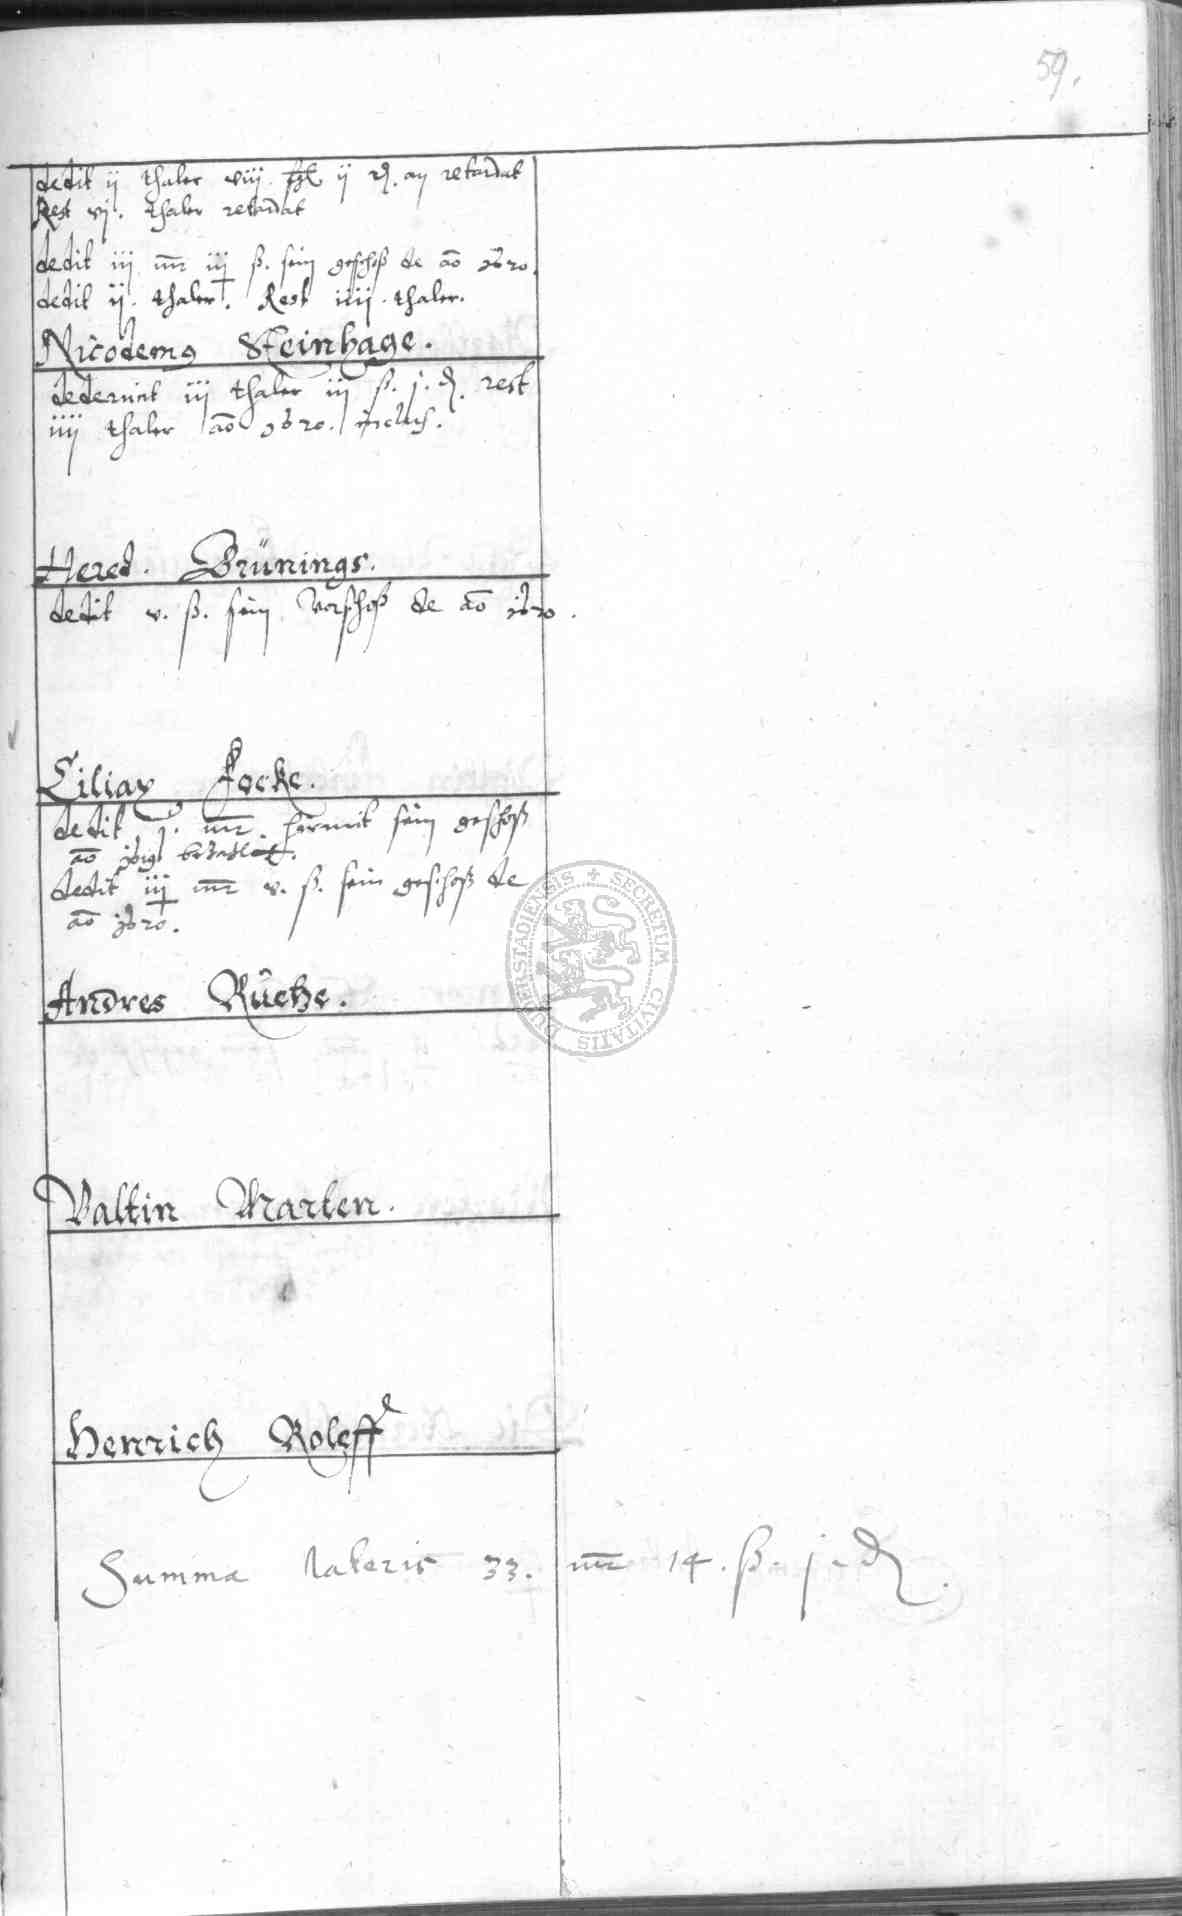 59.
dedit ij thaler viij ggl ij d. an retardat
Rest vj. thaler retardat
dedit iij mr iij ß. sein geschoß de ao 1620.
dedit ij. thaler. Rest iiij thaler.
Nicodemg Steinhage.
dederunt iij thaler iij ß. j. d. rest
iiij thaler ao 1620. inclus.
Hered. Brünings.
dedit v. ß. sein Vorschoß de ao 1620.
Ciliax Focke.
dedit j. mr. hiermit sein geschoß
ao 1619 bezahlet.
dedit iij mr v. ß. sein geschoß de
ao 1620.
Andres Rüetze.
Valtin Marten.
Henrich Roleff
Summa lateris 33. mr 14. ß. j d.
SECRETUM CIVITATIS DUDERSTADIENSIS